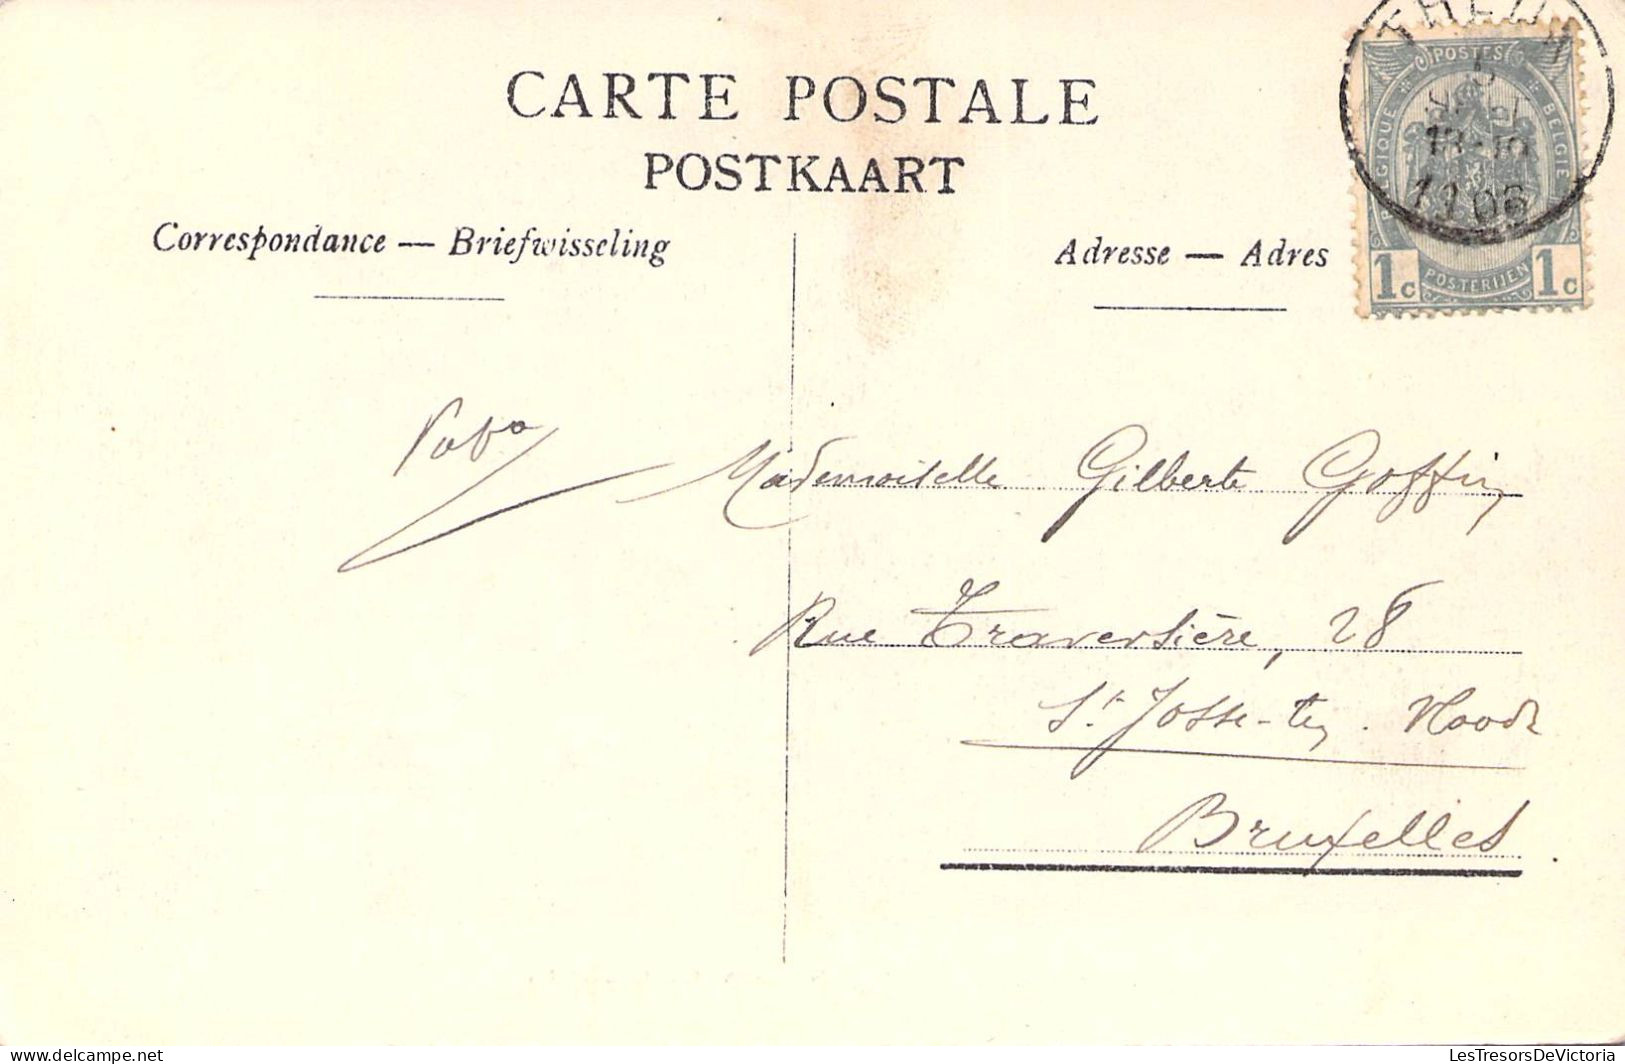 CARTE POSTALE
POSTKAART
Correspondance — Briefwisseling
Adresse — Adres
POSTES
BELGIQUE
BELGIE
POSTERIJEN
1c 1c
1906
Mademoiselle Gilberte Goffin
Rue Traversière, 28
St Josse-ten-Noode
Bruxelles
LesTresorsDeVictoria